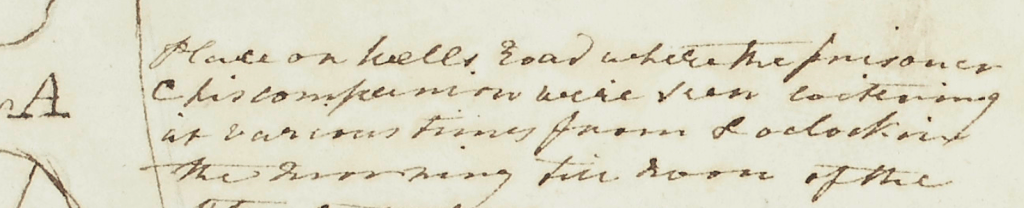 A
Place on hells Road where the prisoner
& his companion were seen loitering
at various times from 8 oclock in
the morning till noon of the